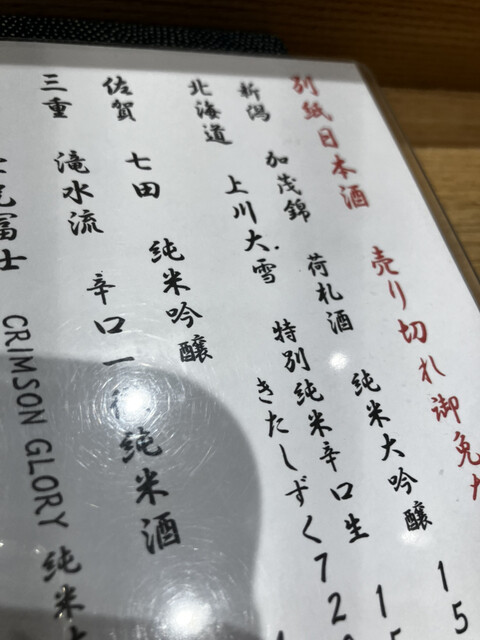 別紙日本酒 売り切れ御免
新潟 加茂錦 荷札酒 純米大吟醸 15
北海道 上川大雪 特別純米辛口生 15
きたしずく72
佐賀 七田 純米吟醸
三重 滝水流 辛口一 純米酒
富士 CRIMSON GLORY 純米